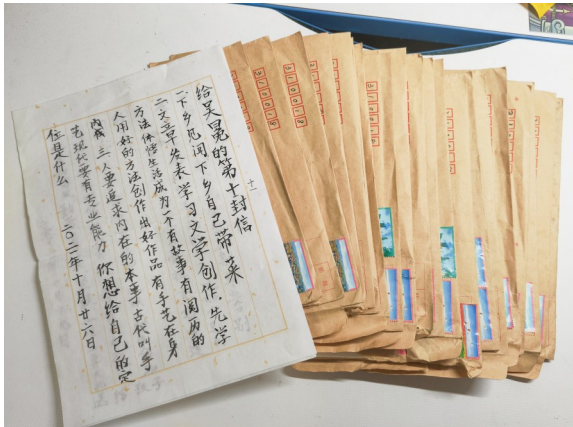 给吴冕的第十封信
十一
一下乡见闻 下乡自己带菜
二文章发表 学习文学创作，先学
方法体悟生活成为一个有故事有阅历的
人用好的方法创作出好作品 有手艺在身
三 人要追求内在的本事古代叫手
艺现代要有专业能力 你想给自己的定
位是什么
二〇二一年十月廿六日
310018